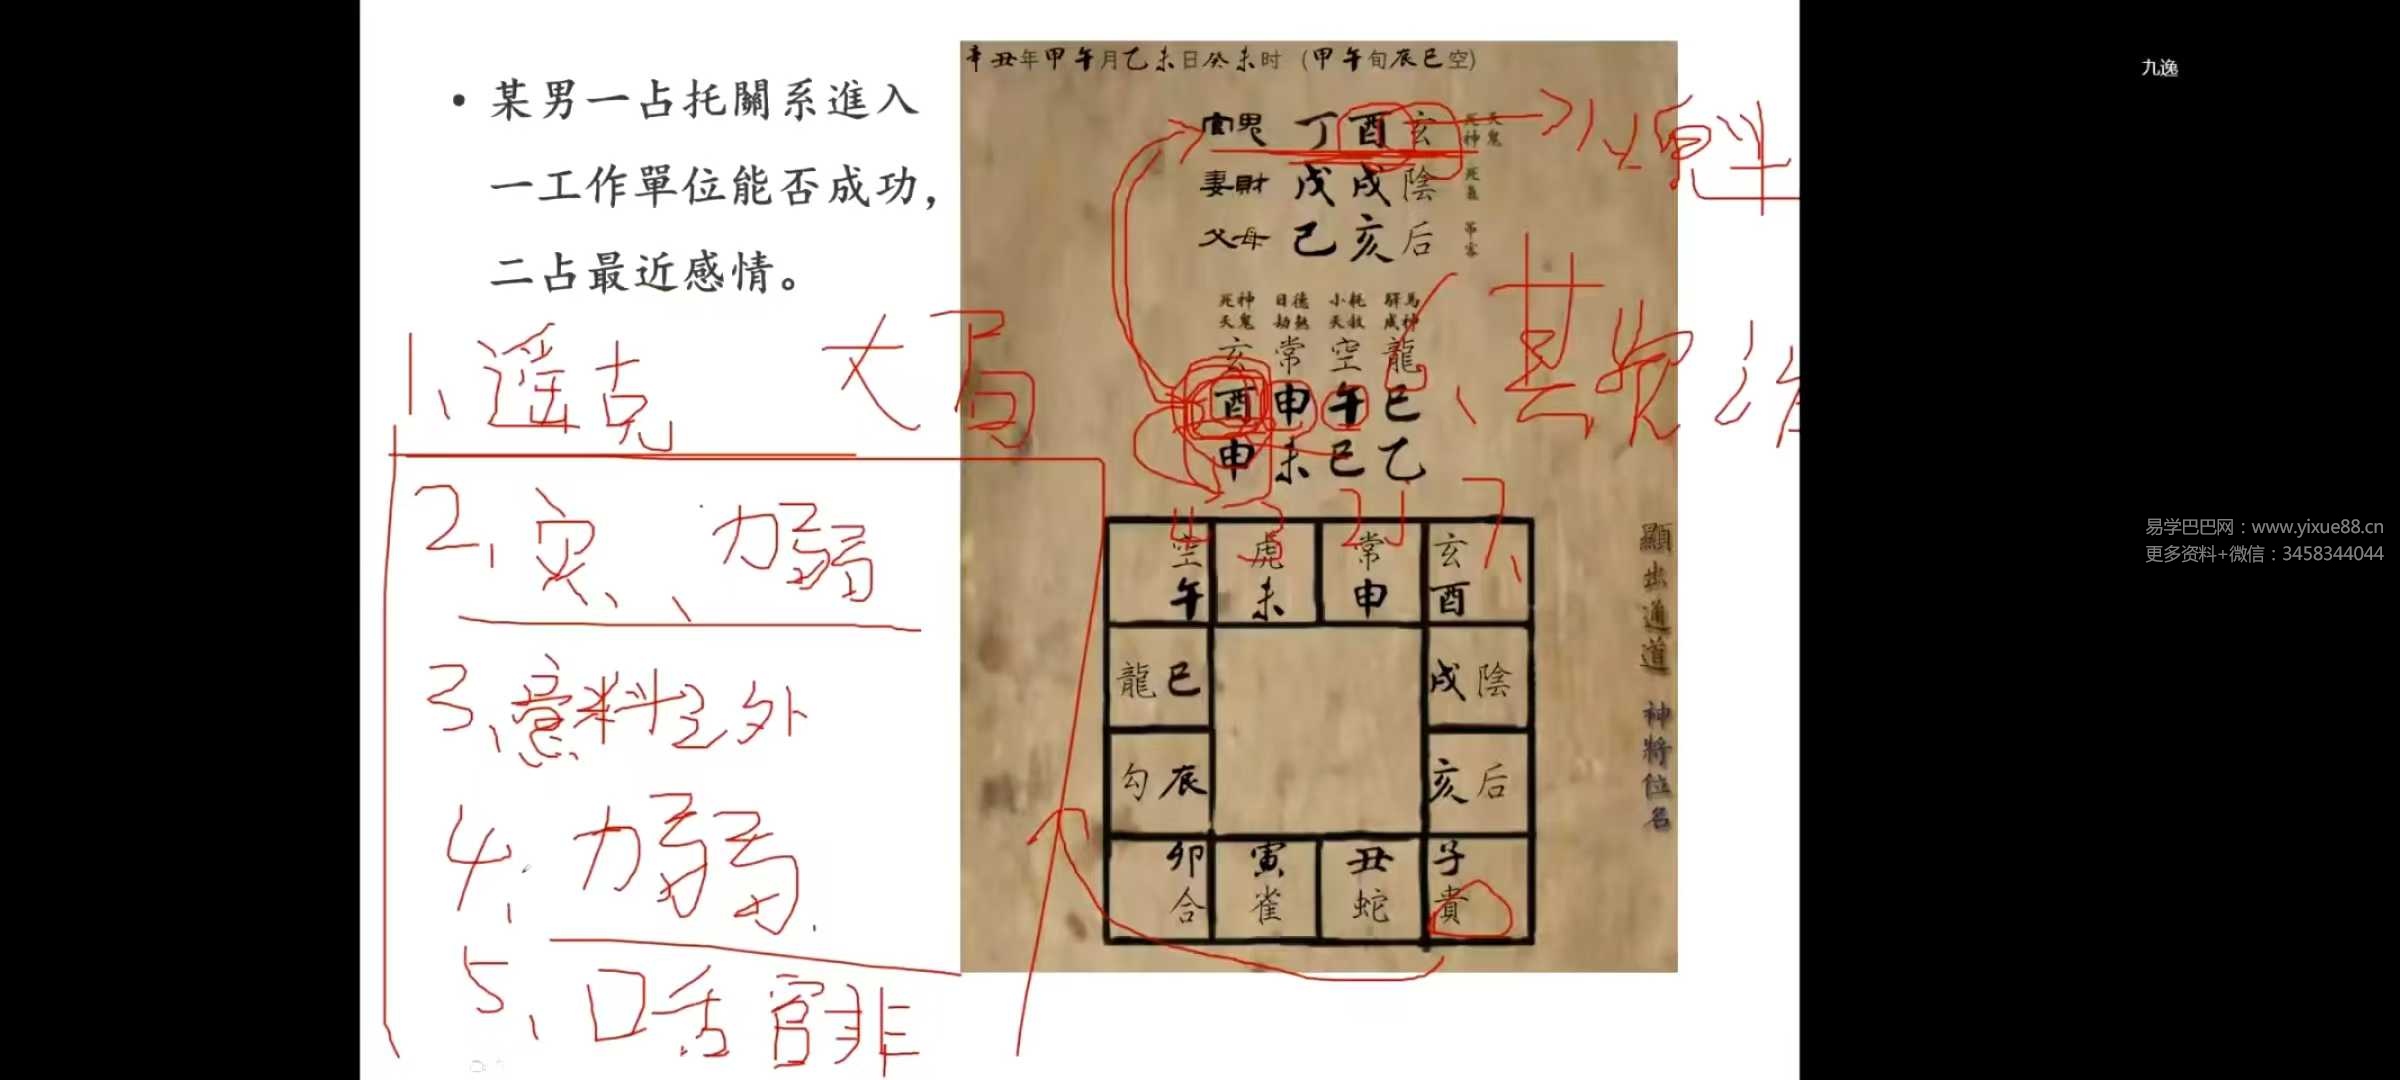 • 某男一占托關系進入
一工作單位能否成功，
二占最近感情。
1、遥克 大局
2、灾、力弱
3、意料之外
4、力弱
5、口舌官非
辛丑年甲午月乙未日癸未时（甲午旬辰巳空）
官鬼 丁酉玄 死神 天鬼
妻財 戊戌陰 死氣
父母 己亥后
死神 日德 小耗 驛馬
天鬼 劫煞 天赦 成神
玄 常 空 龍
酉 申 午 巳
申 未 巳 乙
4 3 2 1
空 虎 常 玄
午 未 申 酉
龍 巳 戌 陰
勾 辰 亥 后
卯 寅 丑 子
合 雀 蛇 貴
神將位名
九逸
易学巴巴网：www.yixue88.cn
更多资料+微信：3458344044